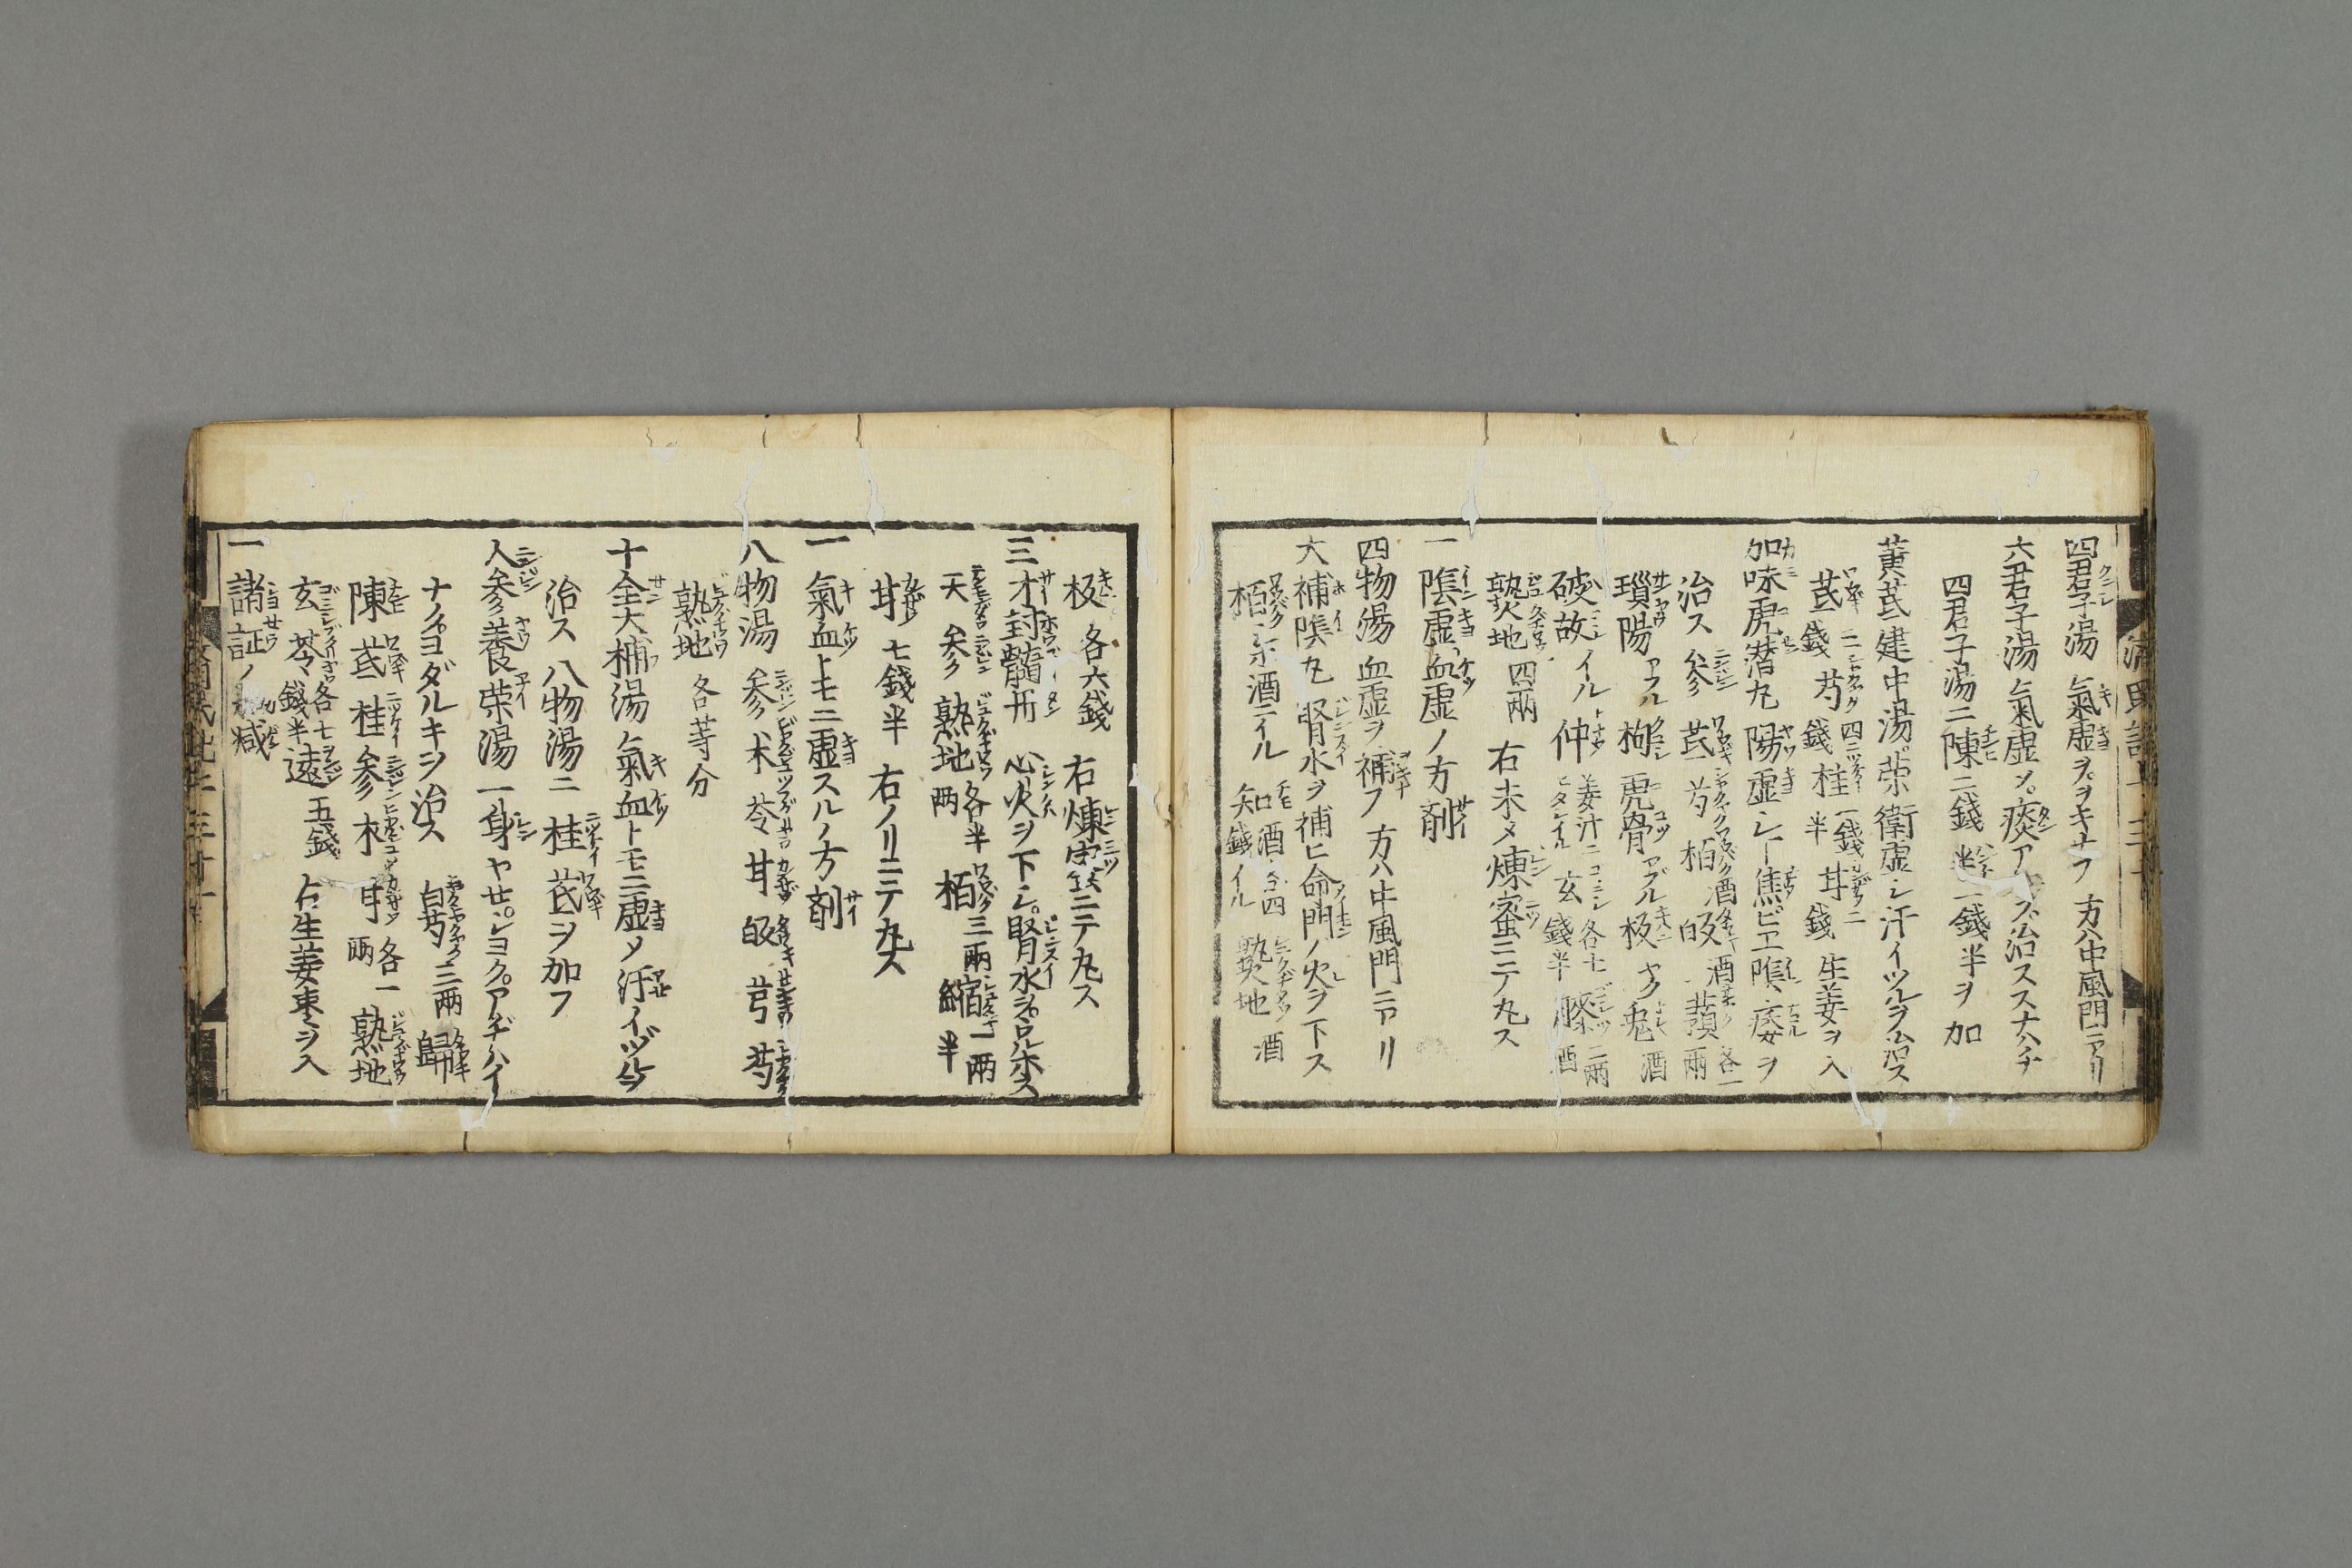 四君子湯 氣虚ヲヲキナフ 方ハ中風門ニアリ
六君子湯 氣虚シ痰ア ヲ治ススナハチ
四君子湯ニ陳二錢 半一錢半ヲ加
黄芪建中湯 荣衛虚シ汗イツルヲ治ス
芪二錢 芍四錢 桂一錢半 甘二錢 生姜ヲ入
加味虎潜丸 陽虚シ 焦ビエ陰痿ヲ
治ス 參 芪 芍 栢酒 皈酒 各一兩
瑣陽アフル 枸 虎骨アブル 板ヤク 兎酒
破故イル 仲姜汁ニヒタシイル 玄各七錢半 膝二兩酒
熟地四兩 右末メ煉蜜ニテ丸ス
一陰虚血虚ノ方剤
四物湯 血虚ヲ補フ 方ハ中風門ニアリ
大補陰丸 腎水ヲ補ヒ命門ノ火ヲ下ス
栢 酒ニイル 知酒 四錢イル 熟地酒
板各六錢 右煉 ニテ丸ス
三才封髓丹 心火ヲ下シ腎水
天 矣 熟地各半兩 栢三兩 縮一兩半
甘七錢半 右ノリニテ丸ス
一氣血トモニ虚スルノ方剤
八物湯 參 朮 苓 甘 皈 芎 芍
熟地 各等分
十全大補湯 氣血トモニ虚メ汗イヅルヲ
治ス 八物湯ニ桂芪ヲ加フ
人參養荣湯 一身ヤセ ヨク アヂハイ
ナ ヨダルキヲ治ス 白芍三兩 歸
陳 芪 桂 參 朮 甘各一兩 熟地
玄 苓各七錢半 遠五錢 右生姜棗ヲ入
一諸証ノ加减